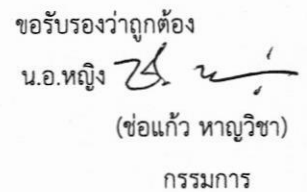 ขอรับรองว่าถูกต้อง
น.อ.หญิง
(ช่อแก้ว หาญวิชา)
กรรมการ